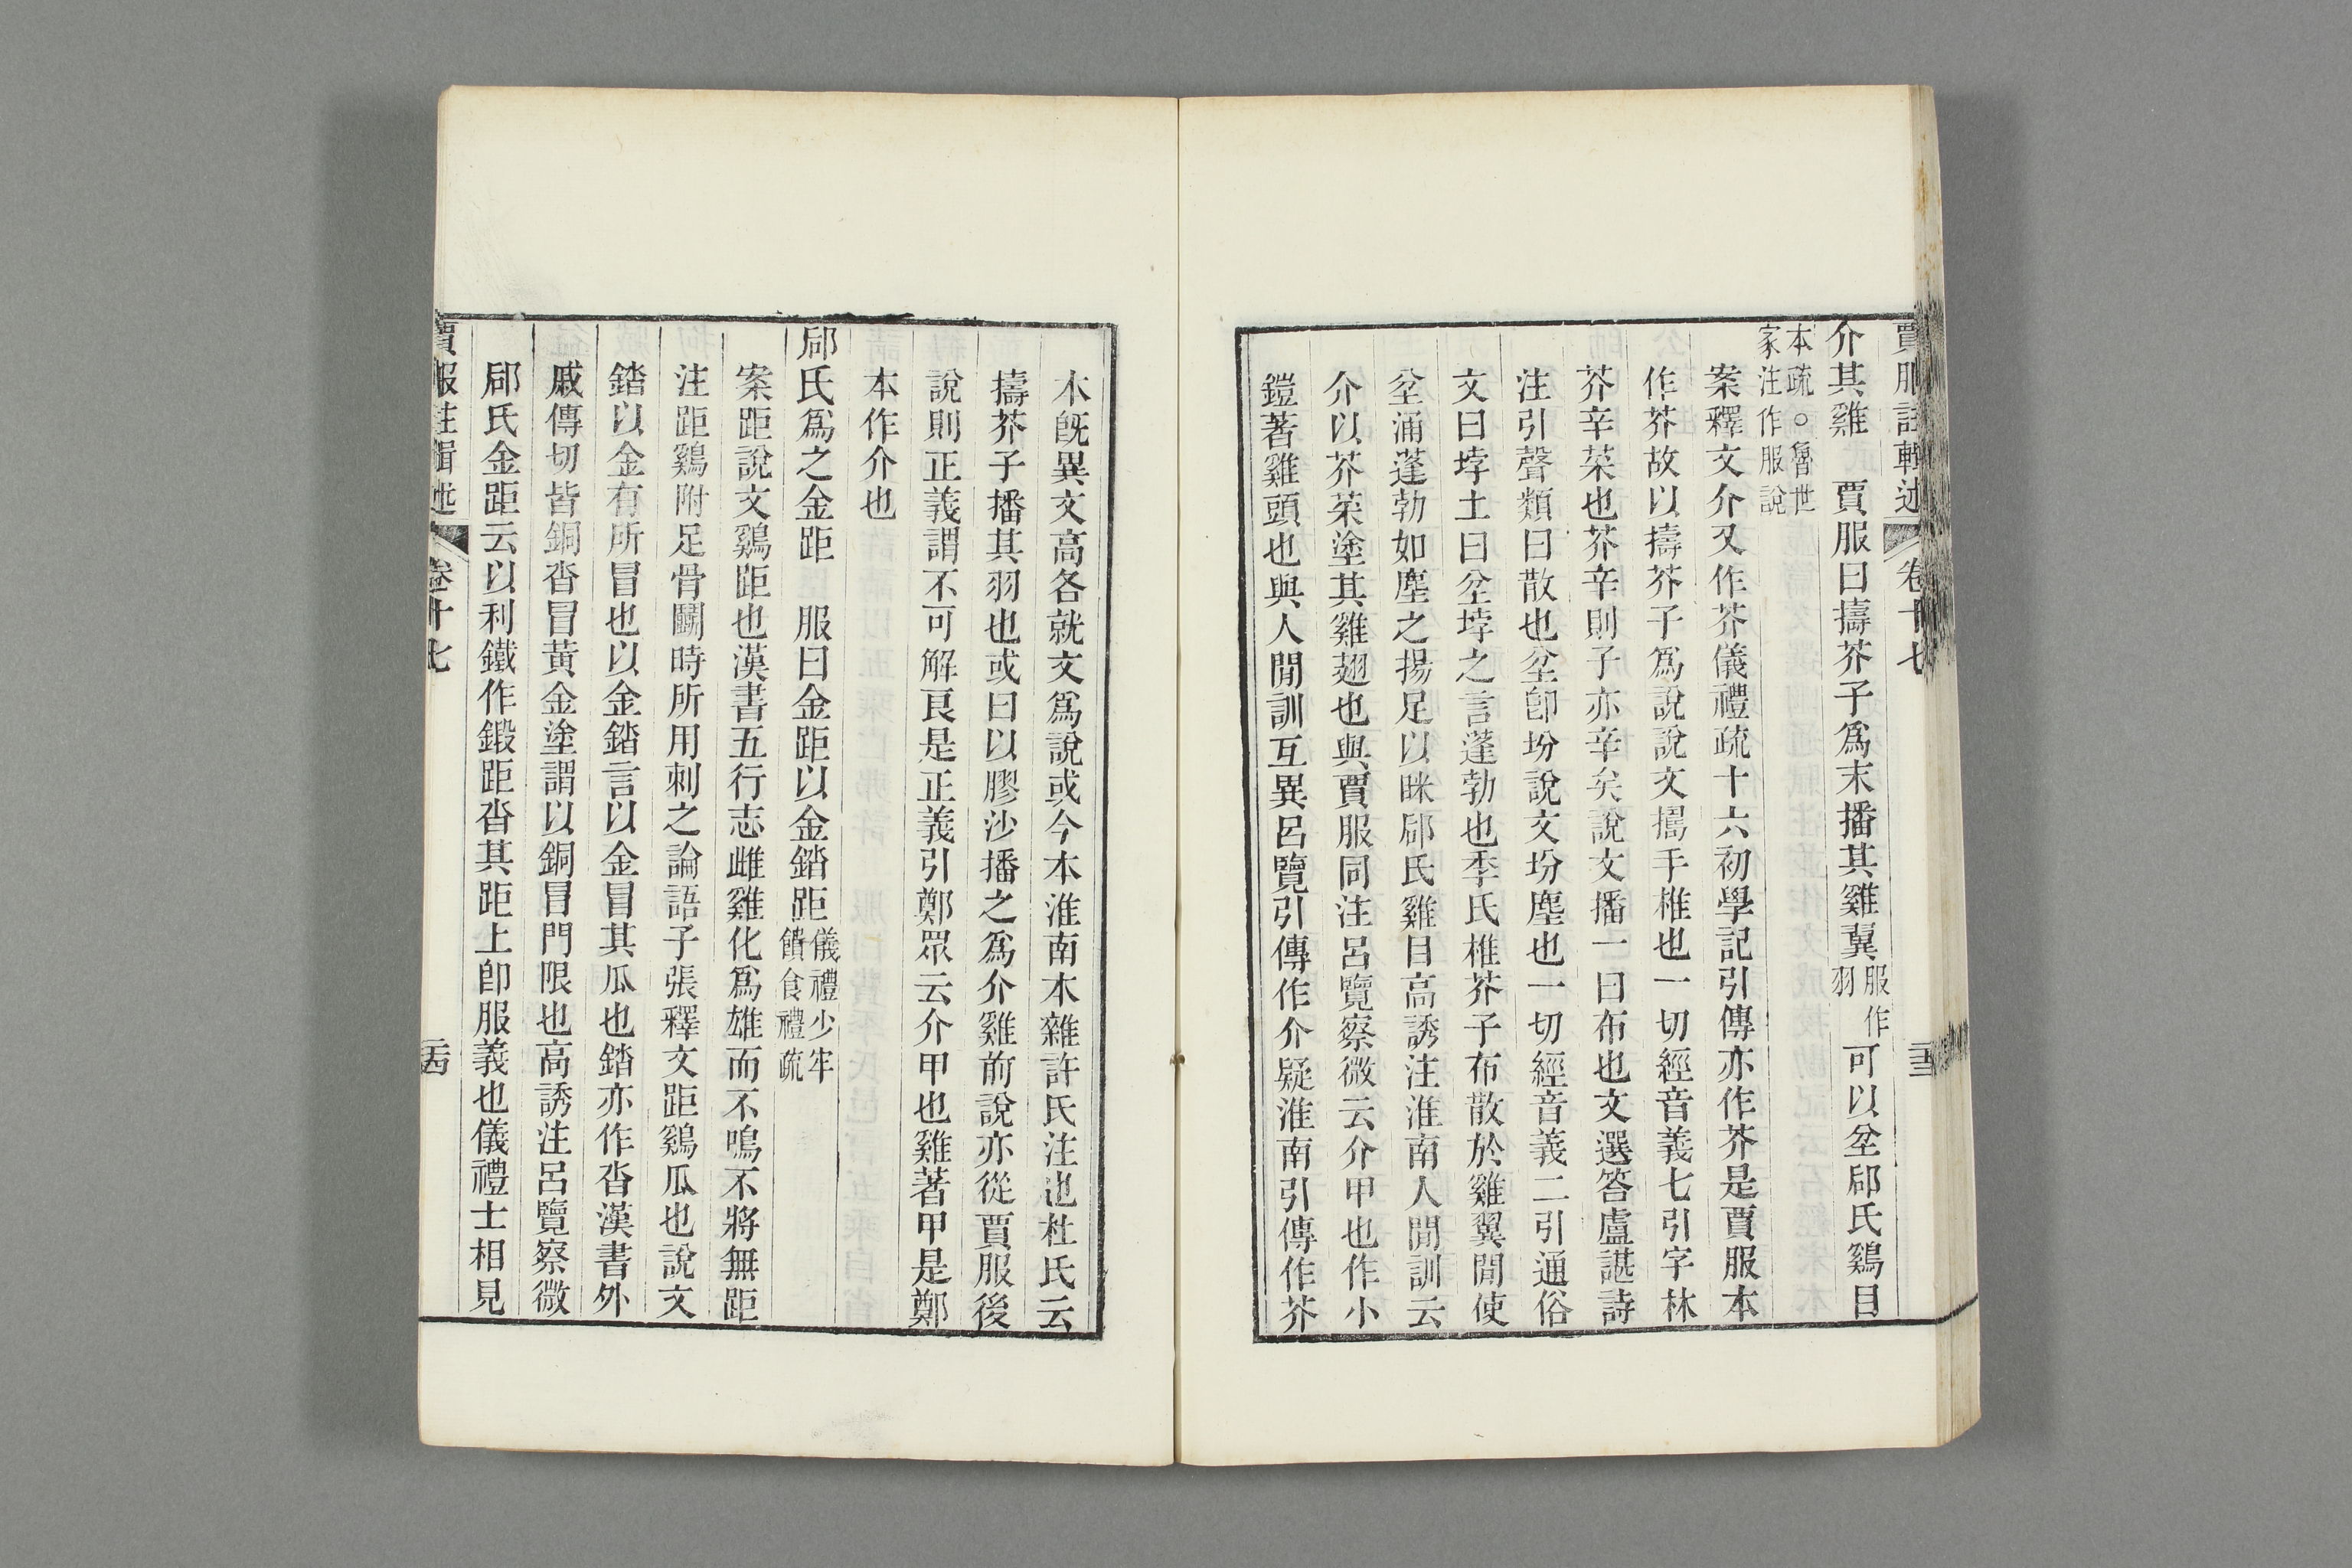 賈服註輯述 卷十七
介其雞　賈服曰擣芥子爲末播其雞翼服作羽可以坌郈氏鷄目
本疏○魯世家注作服說
案釋文介又作芥儀禮疏十六初學記引傳亦作芥是賈服本
作芥故以擣芥子爲說說文擣手椎也一切經音義七引字林
芥辛菜也芥辛則子亦辛矣說文播一曰布也文選答盧諶詩
注引聲類曰散也坌卽坋說文坋塵也一切經音義二引通俗
文曰㘸土曰坌㘸之言蓬勃也季氏椎芥子布散於雞翼閒使
坌涌蓬勃如塵之揚足以眯郈氏雞目高誘注淮南人閒訓云
介以芥菜塗其雞翅也與賈服同注呂覽察微云介甲也作小
鎧著雞頭也與人閒訓互異呂覽引傳作介疑淮南引傳作芥
本旣異文高各就文爲說或今本淮南本雜許氏注也杜氏云
擣芥子播其羽也或曰以膠沙播之爲介雞前說亦從賈服後
說則正義謂不可解艮是正義引鄭眾云介甲也雞著甲是鄭
本作介也
郈氏爲之金距　服曰金距以金錔距儀禮少牢饋食禮疏
案距說文鷄距也漢書五行志雌雞化爲雄而不鳴不將無距
注距鷄附足骨鬭時所用刺之論語子張釋文距鷄瓜也說文
錔以金有所冒也以金錔言以金冒其瓜也錔亦作沓漢書外
戚傳切皆銅沓冒黃金塗謂以銅冒門限也高誘注呂覽察微
郈氏金距云以利鐵作鍛距沓其距上卽服義也儀禮士相見
賈服註輯述 卷十七 二十四